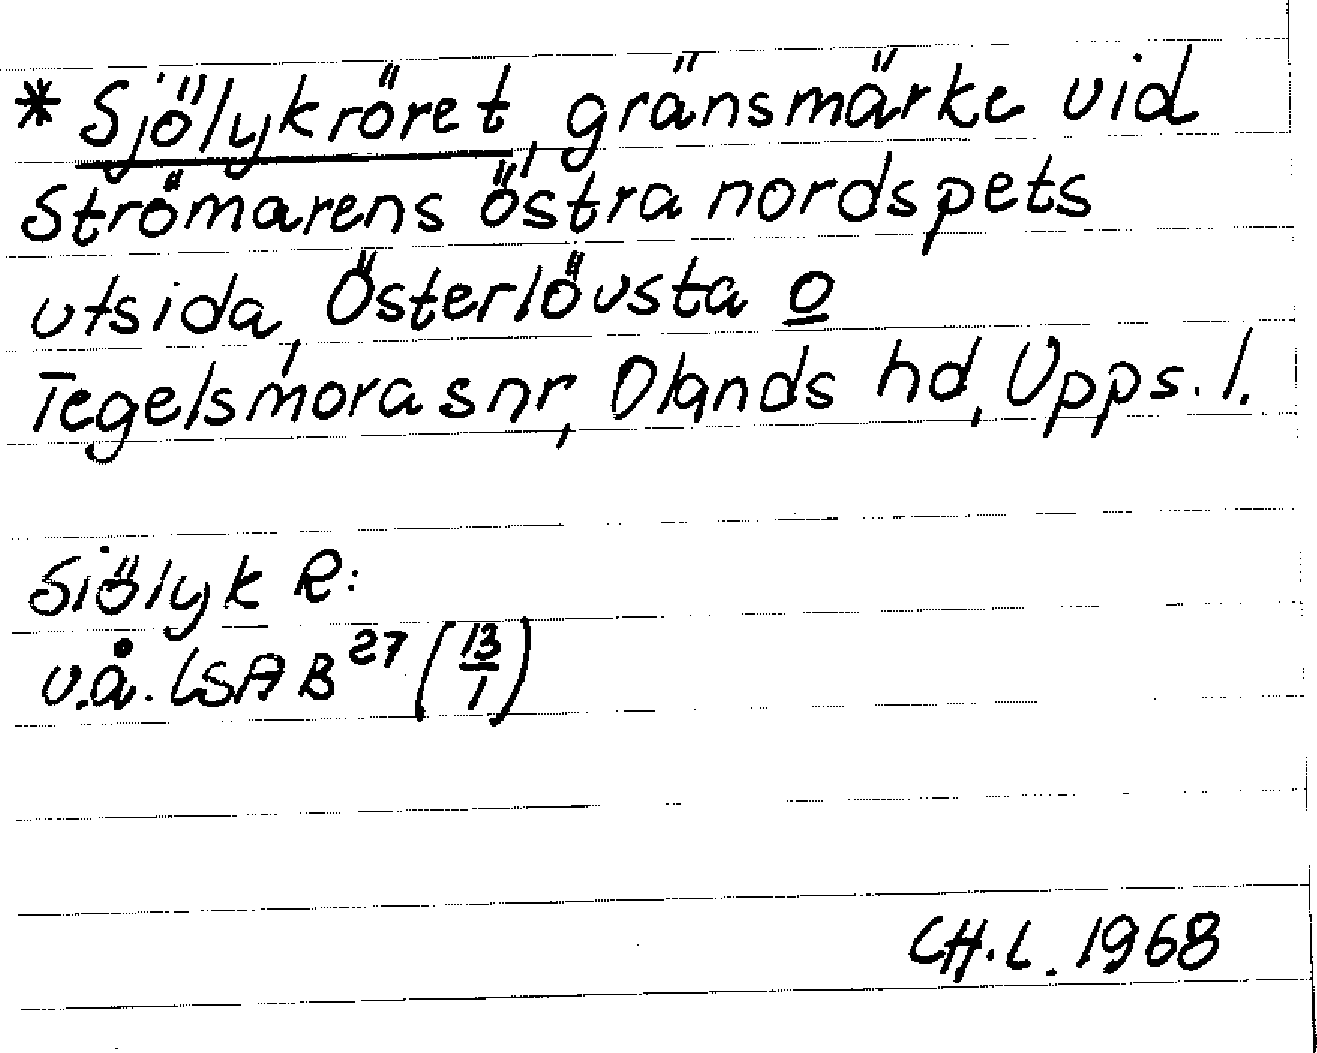 *Sjölykröret, gränsmärke vid
Strömarens östra nordspets
utsida, Österlövsta o
Tegelsmora snr, Olands hd, Upps. l.
Siölyk R:
u.å. LSA B27 (13/1)
CH.L. 1968